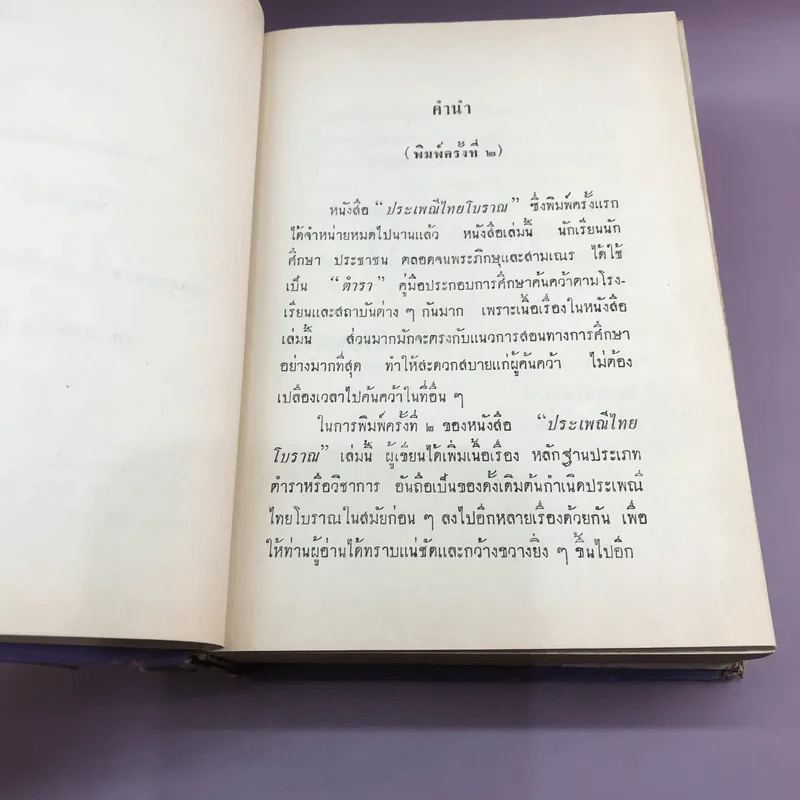 คำนำ
(พิมพ์ครั้งที่ ๒)
หนังสือ “ประเพณีไทยโบราณ” ซึ่งพิมพ์ครั้งแรก
ได้จำหน่ายหมดไปนานแล้ว หนังสือเล่มนี้ นักเรียนนัก
ศึกษา ประชาชน ตลอดจนพระภิกษุและสามเณร ได้ใช้
เป็น “ตำรา” คู่มือประกอบการศึกษาค้นคว้าตามโรง-
เรียนและสถาบันต่าง ๆ กันมาก เพราะเนื้อเรื่องในหนังสือ
เล่มนี้ ส่วนมากมักจะตรงกับแนวการสอนทางการศึกษา
อย่างมากที่สุด ทำให้สะดวกสบายแก่ผู้ค้นคว้า ไม่ต้อง
เปลืองเวลาไปค้นคว้าในที่อื่น ๆ
ในการพิมพ์ครั้งที่ ๒ ของหนังสือ “ประเพณีไทย
โบราณ” เล่มนี้ ผู้เขียนได้เพิ่มเนื้อเรื่อง หลักฐานประเภท
ตำราหรือวิชาการ อันถือเป็นของดั้งเดิมต้นกำเนิดประเพณี
ไทยโบราณในสมัยก่อน ๆ ลงไปอีกหลายเรื่องด้วยกัน เพื่อ
ให้ท่านผู้อ่านได้ทราบแน่ชัดและกว้างขวางยิ่ง ๆ ขึ้นไปอีก